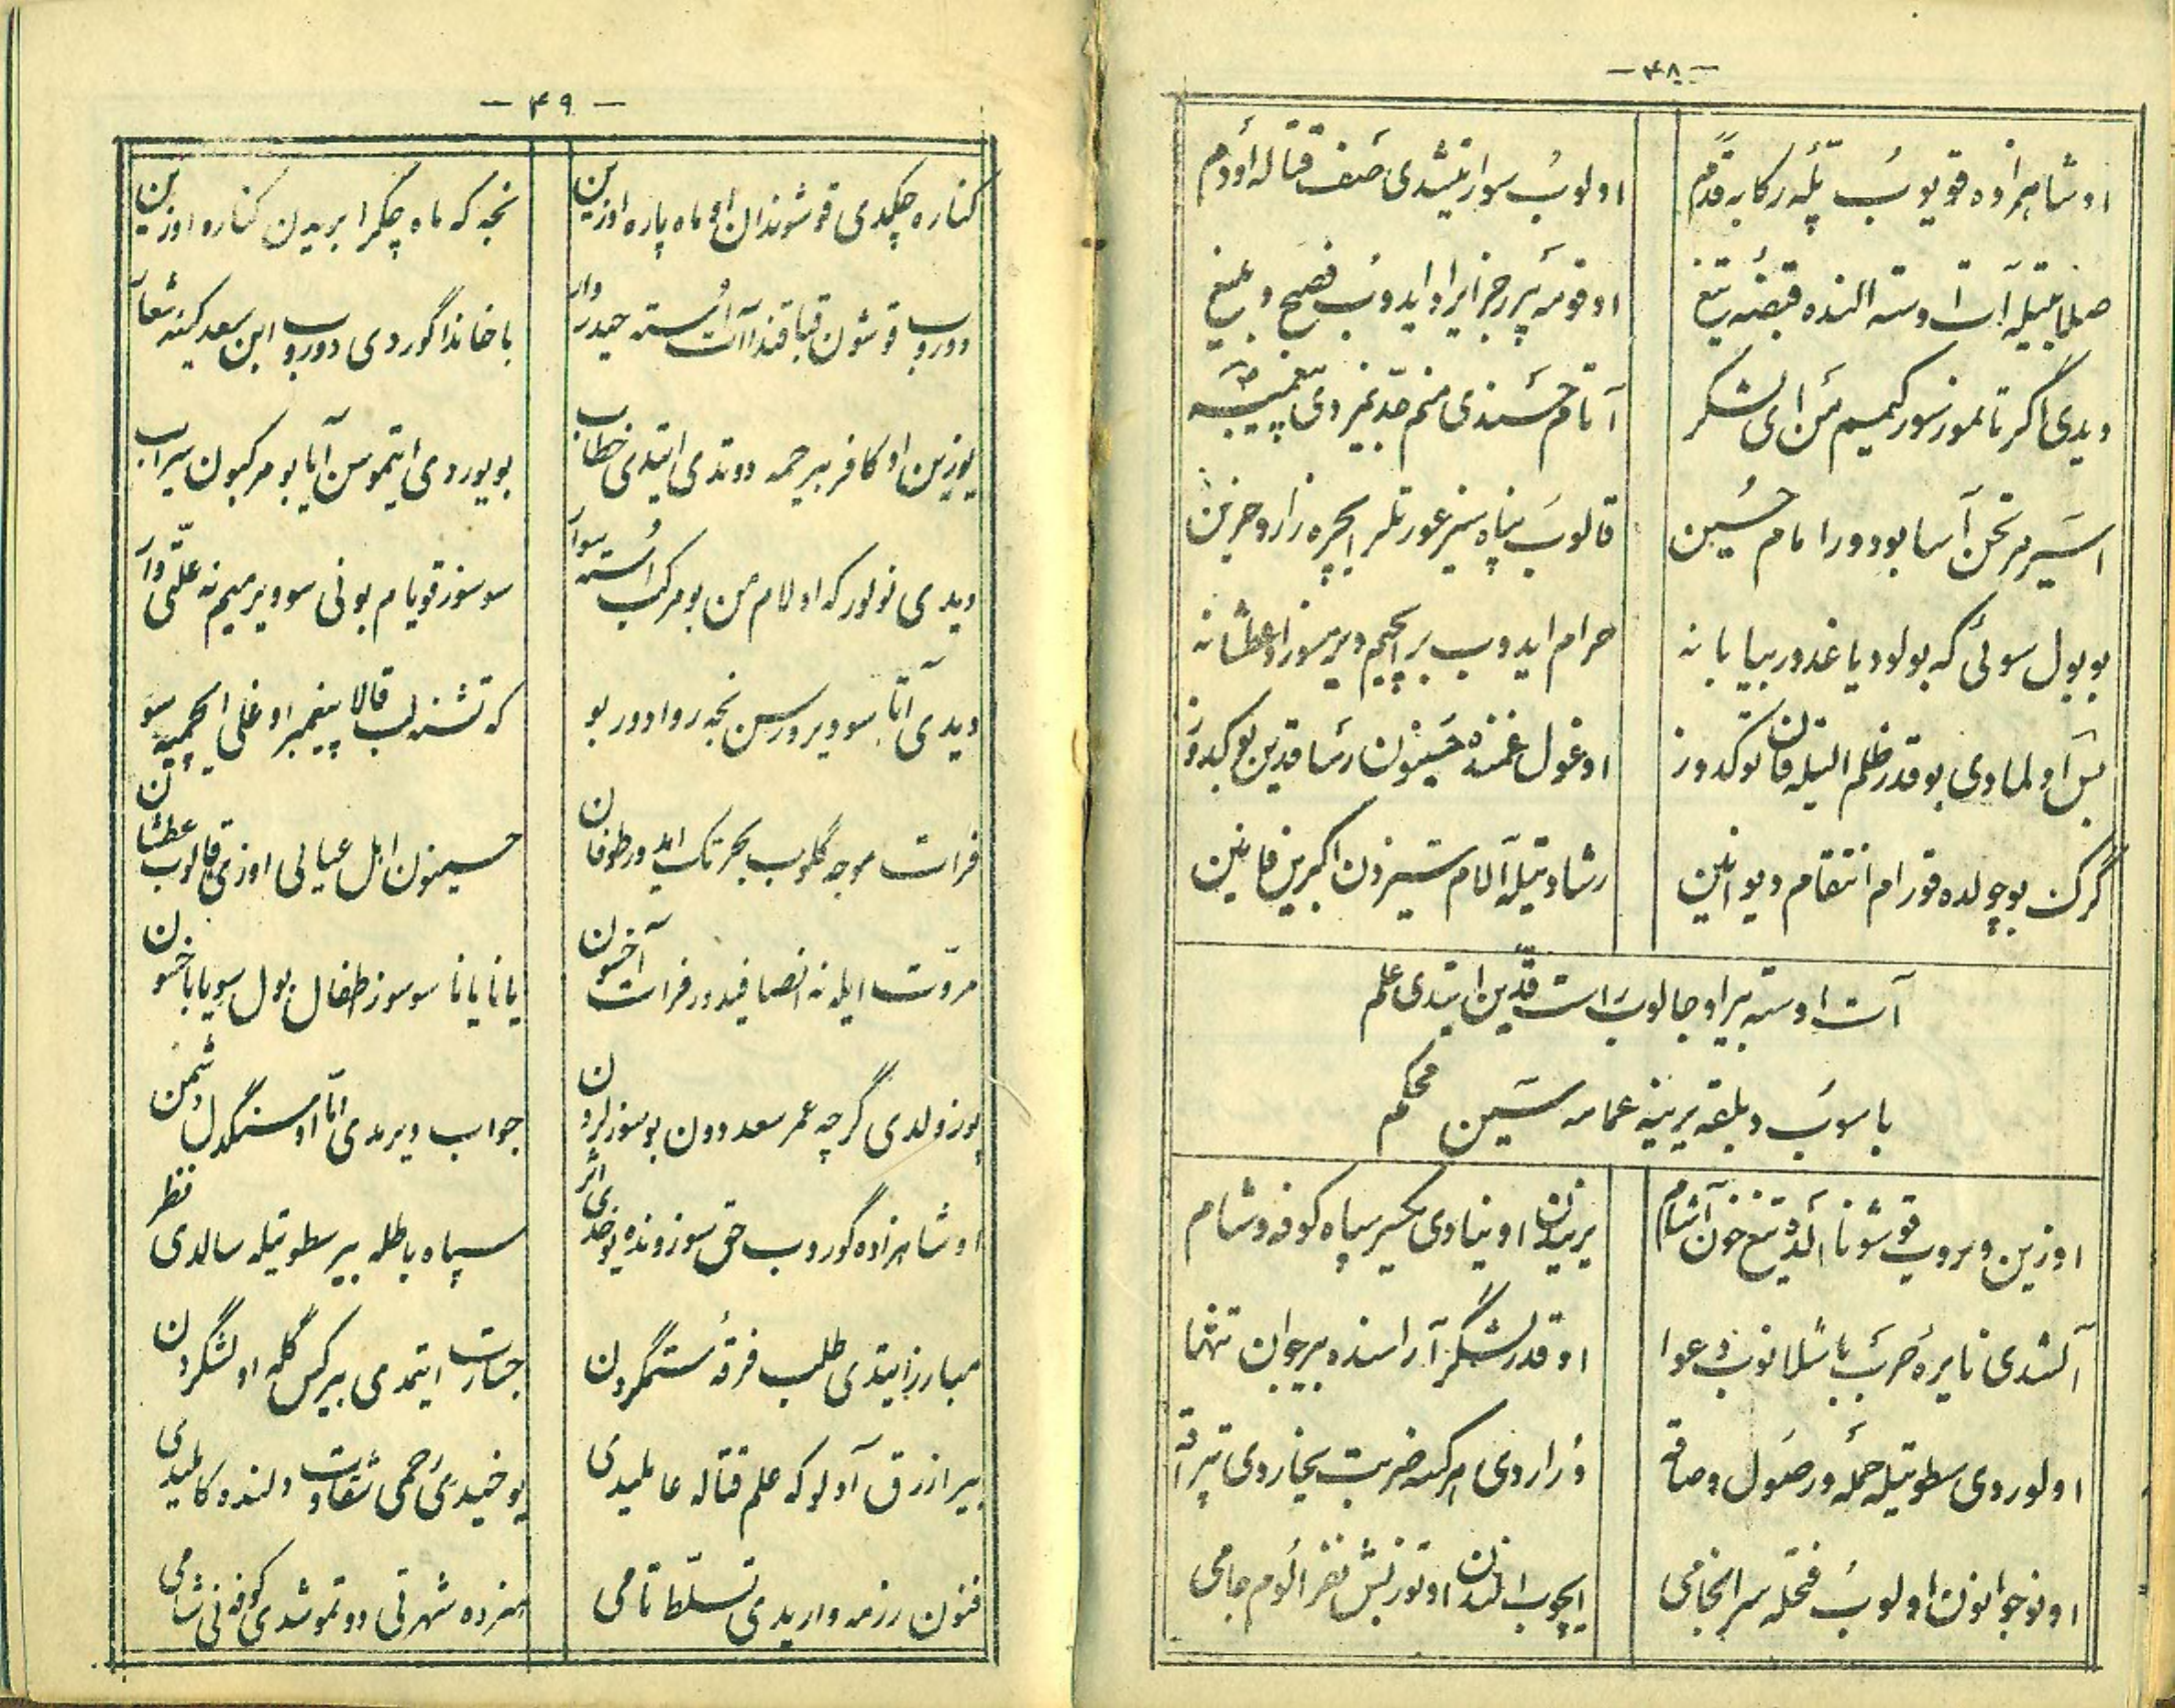 — ۴۸ —
اوشاهزاده قویوب تله رکابه قدم
اولوب سوار یتشدی صف قتاله اودم
صلابتیله آت اوسته النده قبضه تیغ
اوقومه بیر رجز ایراد ایدوب فصیح و بلیغ
دیدی اگر تانموز سوز کمیم من ای لشکر
آتام حسندی منم جدیمزدی پیغمبر
اسیر محن آسا بودور امام حسین
قالوب پناه سیز عورتلر ایچره زار و حزین
بو بول سوئی که بولود یاغدورر بیابانه
حرام ایدوب بر ایچیم ویرمسوز او عطشانه
بس اولمادی بوقدر ظلم ایله قان توکدوز
اوغول غمنده حسینون رسا قدین بوکدوز
گرک بو چولده قورام انتقام دیوانین
رشادتیله آلام سیزدن اکبرین قانین
آت اوسته بیر اوجالوب راست قدین ایتدی علم
باسوب دبلقه یرینه عمامه سین محکم
اوزین ویروب قوشونا الده تیغ خون آشام
یریندن اوینادی یکسر سپاه کوفه و شام
آلشدی نایره حرب باشلانوب دعوا
اوقدر لشگر آراسنده بیر جوان تنها
اولوردی سطوتیله حمله ور صول و صاقه
وراردی هر کسه ضربت یخاردی تپراقه
اونوجوانون اولوب فحله سرانجامی
ایچوب الیندن اوتوز بش نفر الوم جامی
— ۴۹ —
کناره چکدی قوشوندان او ماه پاره اوزین
نجه که ماه چکر ابریدن کناره اوزین
دوروب قوشون قباقندا آت اوسته حیدروار
باخاندا گوردی دوروب ابن سعد کینه شعار
یوزین او کافر بیرحمه دوتدی ایتدی خطاب
بویوردی ایتموسن آیا بو مرکبون سیراب
دیدی نولور که اولام من بو مرکب اوسته سوار
سوسوز قویام بونی سو ویرمیم نه علتی وار
دیدی آتا سو ویرورسن نجه روادور بو
که تشنه لب قالا پیغمبر اوغلی ایچمیه سو
فرات موجه گلوب بحر تک ایدور طوفان
حسینون اهل عیالی اوزی قالوب عطشان
مروت ایله نه انصافیدور فرات آخسون
یانا یانا سوسوز اطفال بول سویا باخسون
پوزولدی گرچه عمر سعد دون بو سوزلردن
جواب ویرمدی اما او سنگدل دشمن
اوشاهزاده گوروب حق سوزونده یوخدی اثر
سپاه باطله بیر سطوتیله سالدی نظر
مبارز ایتدی طلب فرقه ستمگردن
جسارت ایتمدی بیر کس گله او لشگردن
بیر ازرق آدلو که علم قتاله عالمیدی
یوخیدی رحمی شقاوت ولنده کاملیدی
فنون رزمه واریدی تسلط تامی
هنرده شهرتی دوتموشدی کوفه نی شامی